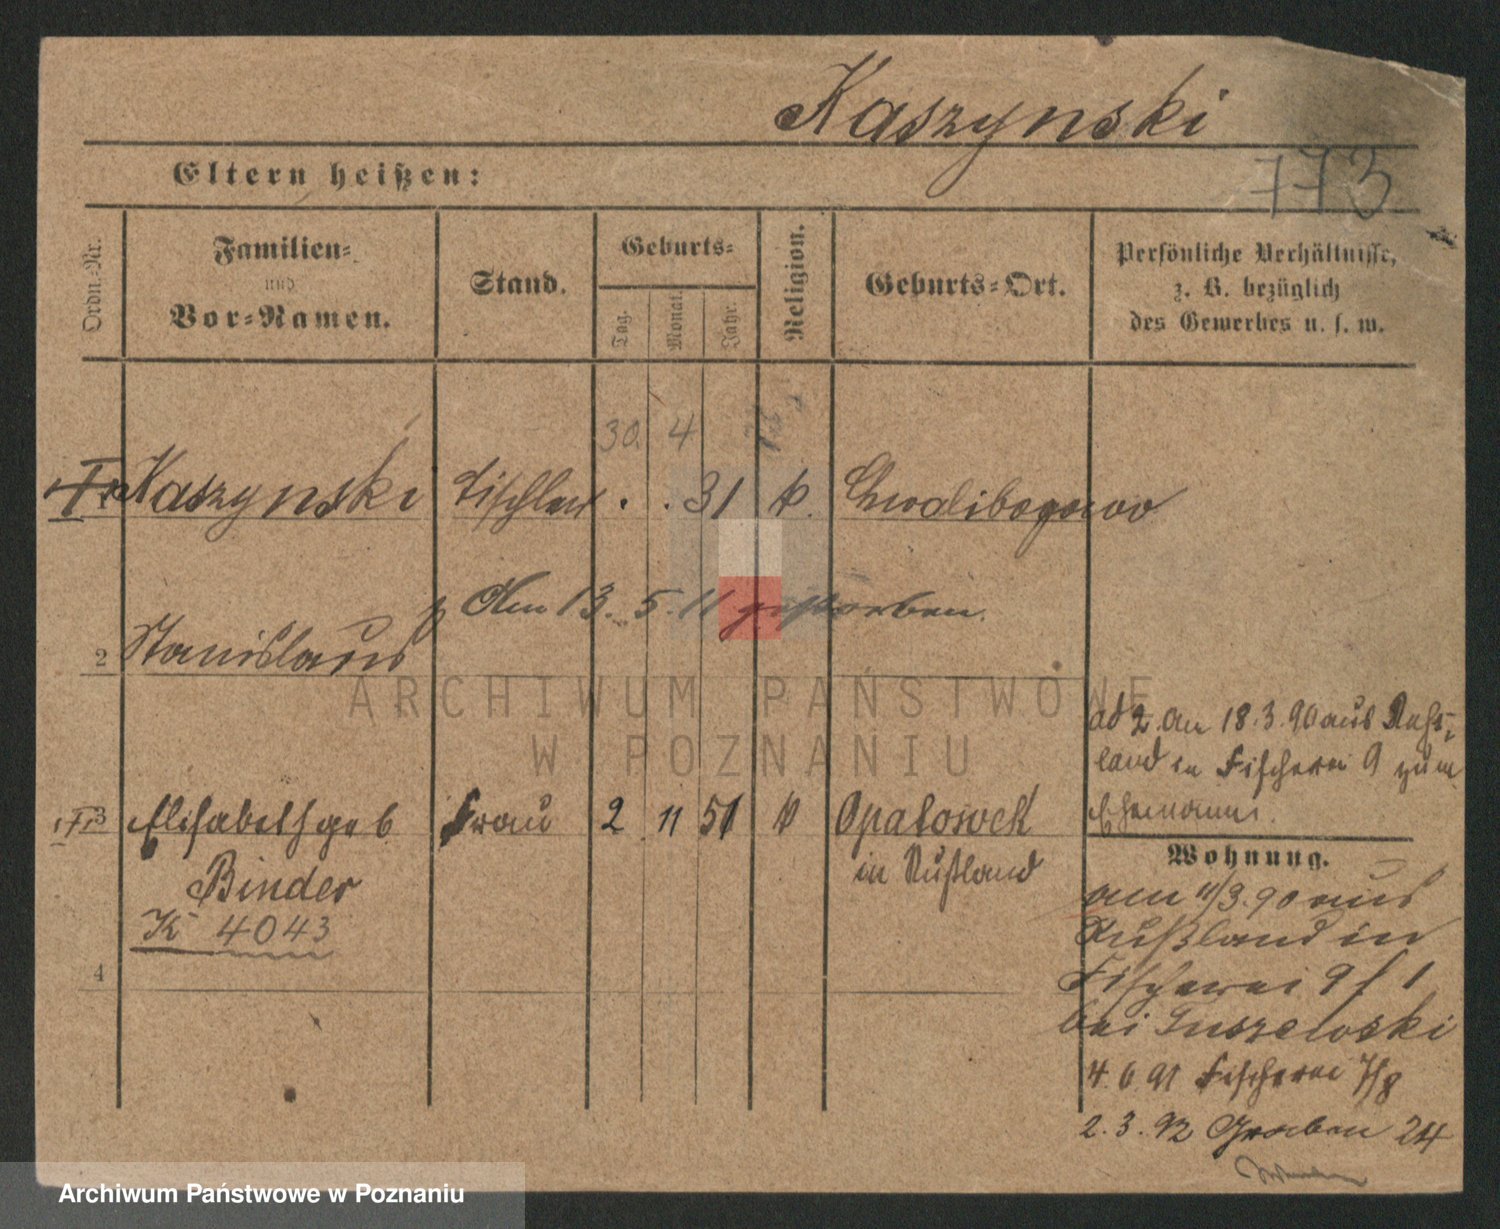 Kaszynski
Eltern heißen:
773
Ordn.-Nr.
Familien-
und
Vor-Namen.
Stand.
Geburts-
Tag.
Monat.
Jahr.
Religion.
Geburts-Ort.
Persönliche Verhältnisse,
z. B. bezüglich
des Gewerbes u. s. w.
30. 4
1 Kaszynski Tischler . . 31 k. Chwalibogowo
Am 13. 5. 11 gestorben.
2 Stanislaus
ARCHIWUM PAŃSTWOWE
W POZNANIU
ad 2. am 18.3.90 aus Russ-
land in Fischerei 9 zum
Ehemann.
3 Elisabeth geb Frau 2 11 51 k Opatowek
Binder
in Rußland
K 4043
4
Wohnung.
am 11/3.90 aus
Rußland in
Fischerei 9 f 1
bei
4.6.91 Fischerei 7/8
2.3.92 Graben 24
Archiwum Państwowe w Poznaniu